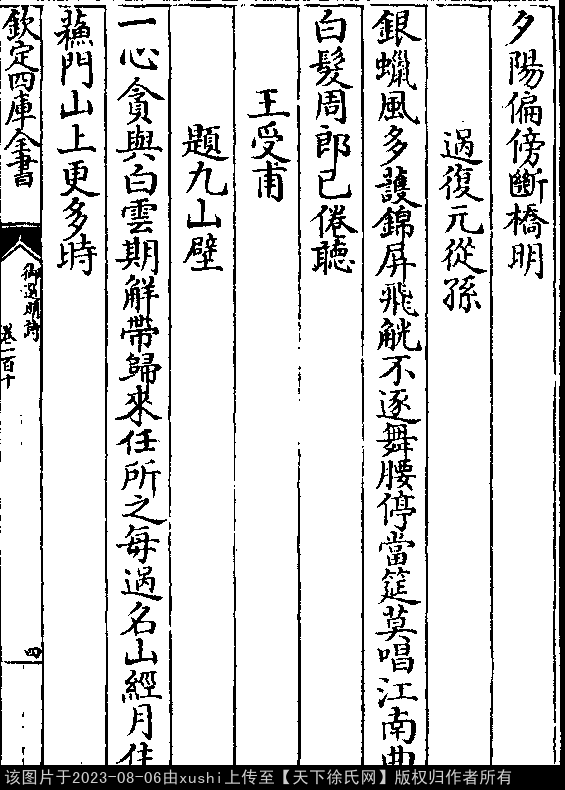 夕陽偏傍斷橋明
過復元從孫
銀蠟風多䕶錦屏飛觥不逐舞腰停當筵莫唱江南曲
白髮周郎已倦聽
王受甫
題九山壁
一心貪與白雲期解帶歸來任所之每過名山經月住
蘓門山上更多時
欽定四庫全書
御選明詩
卷一百十
四
该图片于2023-08-06由xushi上传至【天下徐氏网】版权归作者所有